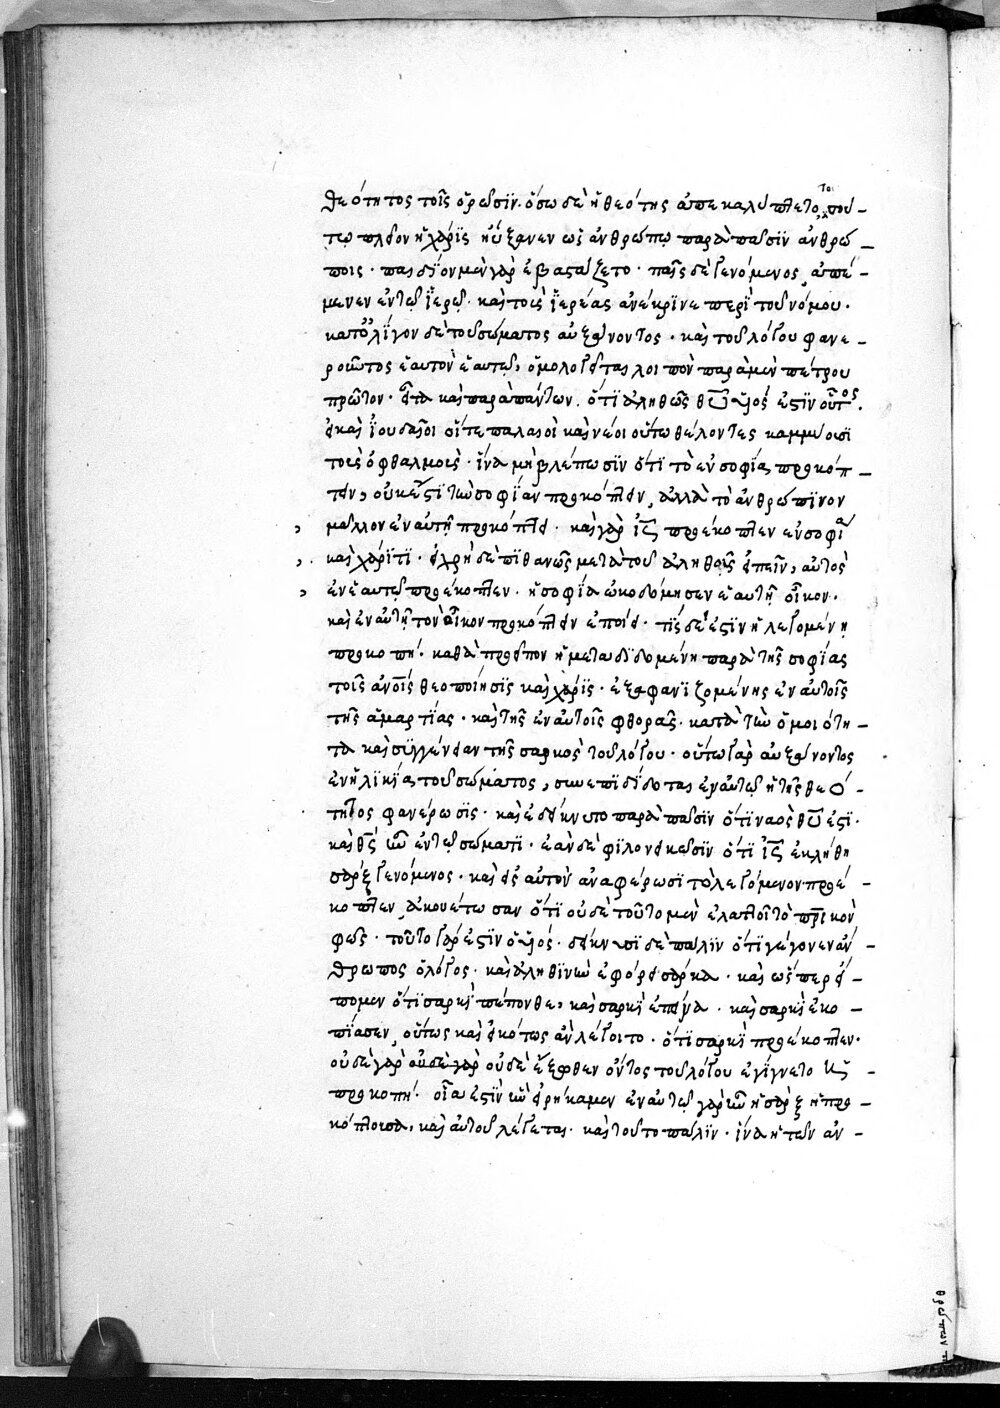 θεότητος τοῖς ὁρῶσϊν. ὅσω δὲ ἡ θεότης ἀπεκαλύπτετο, τοσού-
τω πλέον ἡ χάρϊς ηὔξανεν ὡς ἀνθρώπω παρὰ πᾶσϊν ἀνθρώ-
ποις· παιδΐον μὲν γὰρ ἐβαστάζετο· παῖς δὲ γενόμενος, ἀπέ-
μενεν ἐν τῶ ἱερῶ· καὶ τοὺς ἱερέας ἀνέκρϊνε περὶ τοῦ νόμου·
κατ' ὀλΐγον δὲ τοῦ σώματος αὐξάνοντος· καὶ τοῦ λόγου φανε-
ροῦντος ἑαυτὸν ἑαυτῶ, ὁμολογεῖται λοιπὸν παρὰ μὲν πέτρου
πρῶτον· εἶτα καὶ παρὰ πάντων. ὅτϊ ἀληθῶς θῦ υἱός ἐστϊν οὗτος.
εἰ καὶ ἰουδαῖοι οἵ τε παλαιοὶ καὶ νέοι οὕτω θέλοντες καμμύουσϊ
τοὺς ὀφθαλμοὺς· ἵνα μὴ βλέπωσϊν ὅτϊ τὸ ἐν σοφία προκόπ-
τειν, οὐκ ἔστϊ τὴν σοφΐαν προκόπτειν, ἀλλὰ τὸ ἀνθρώπϊνον
μᾶλλον ἐν αὐτῇ προκόπτει· καὶ γὰρ ἰς προέκοπτεν ἐν σοφία
καὶ χάρϊτϊ· εἰ χρὴ δὲ πϊθανῶς μετὰ τοῦ ἀληθοῦς εἰπεῖν, αὐτὸς
ἐν ἑαυτῶ προέκοπτεν· ἡ σοφία ὠκοδόμησεν ἑαυτῇ οἶκον·
καὶ ἐν αὐτῇ τὸν οἶκον προκόπτειν ἐποίει· τΐς δέ ἐστϊν ἡ λεγομένη
προκοπή· καθὰ προεῖπον ἡ μεταδϊδομένη παρὰ τῆς σοφΐας
τοῖς ἀνοῖς θεοποίησϊς καὶ χάρϊς· ἐξαφανϊζομένης ἐν αὐτοῖς
τῆς ἁμαρτΐας· καὶ τῆς ἐν αὐτοῖς φθορᾶς· κατὰ τὴν ὁμοιότη-
τα καὶ συγγένειαν τῆς σαρκὸς τοῦ λόγου· οὕτω γὰρ αὐξάνοντος
ἐν ἡλϊκΐα τοῦ σώματος, συνεπϊδΐδοται ἐν αὐτῶ ἡ τῆς θεό-
τητος φανέρωσϊς· καὶ ἐδείκνυτο παρὰ πᾶσϊν ὅτϊ ναὸς θῦ ἐστϊ·
καὶ θς ἦν ἐν τῶ σώματϊ· ἐὰν δὲ φϊλονεικῶσϊν ὅτϊ ἰς ἐκλήθη
σὰρξ γενόμενος· καὶ εἰς αὐτὸν ἀναφέρωσϊ τὸ λεγόμενον προέ-
κοπτεν, ἀκουέτωσαν ὅτϊ οὐδὲ τοῦτο μὲν ἐλαττοῖ τὸ πρϊκὸν
φῶς· τοῦτο γάρ ἐστϊν ὁ υἱός· δείκνυσϊ δὲ πάλϊν ὅτϊ γέγονεν ἄν-
θρωπος ὁ λόγος· καὶ ἀληθϊνὴν ἐφόρει σάρκα· καὶ ὥσπερ εἴ-
πομεν ὅτϊ σαρκὶ πέπονθε, καὶ σαρκὶ ἐπείνα· καὶ σαρκὶ ἐκο-
πΐασεν, οὕτως καὶ εἰκότως ἂν λέγοιτο· ὅτϊ σαρκὶ προέκοπτεν·
οὐδὲ γὰρ οὐδὲ γὰρ οὐδὲ ἔξωθεν ὄντος τοῦ λόγου ἐγΐγνετο ἡ
προκοπή· οἵα ἐστϊν ἣν εἰρήκαμεν ἐν αὐτῶ γὰρ ἦν ἡ σὰρξ ἡ προ-
κόπτουσα, καὶ αὐτοῦ λέγεται· καὶ τοῦτο πάλϊν· ἵνα ἡ τῶν ἀν-